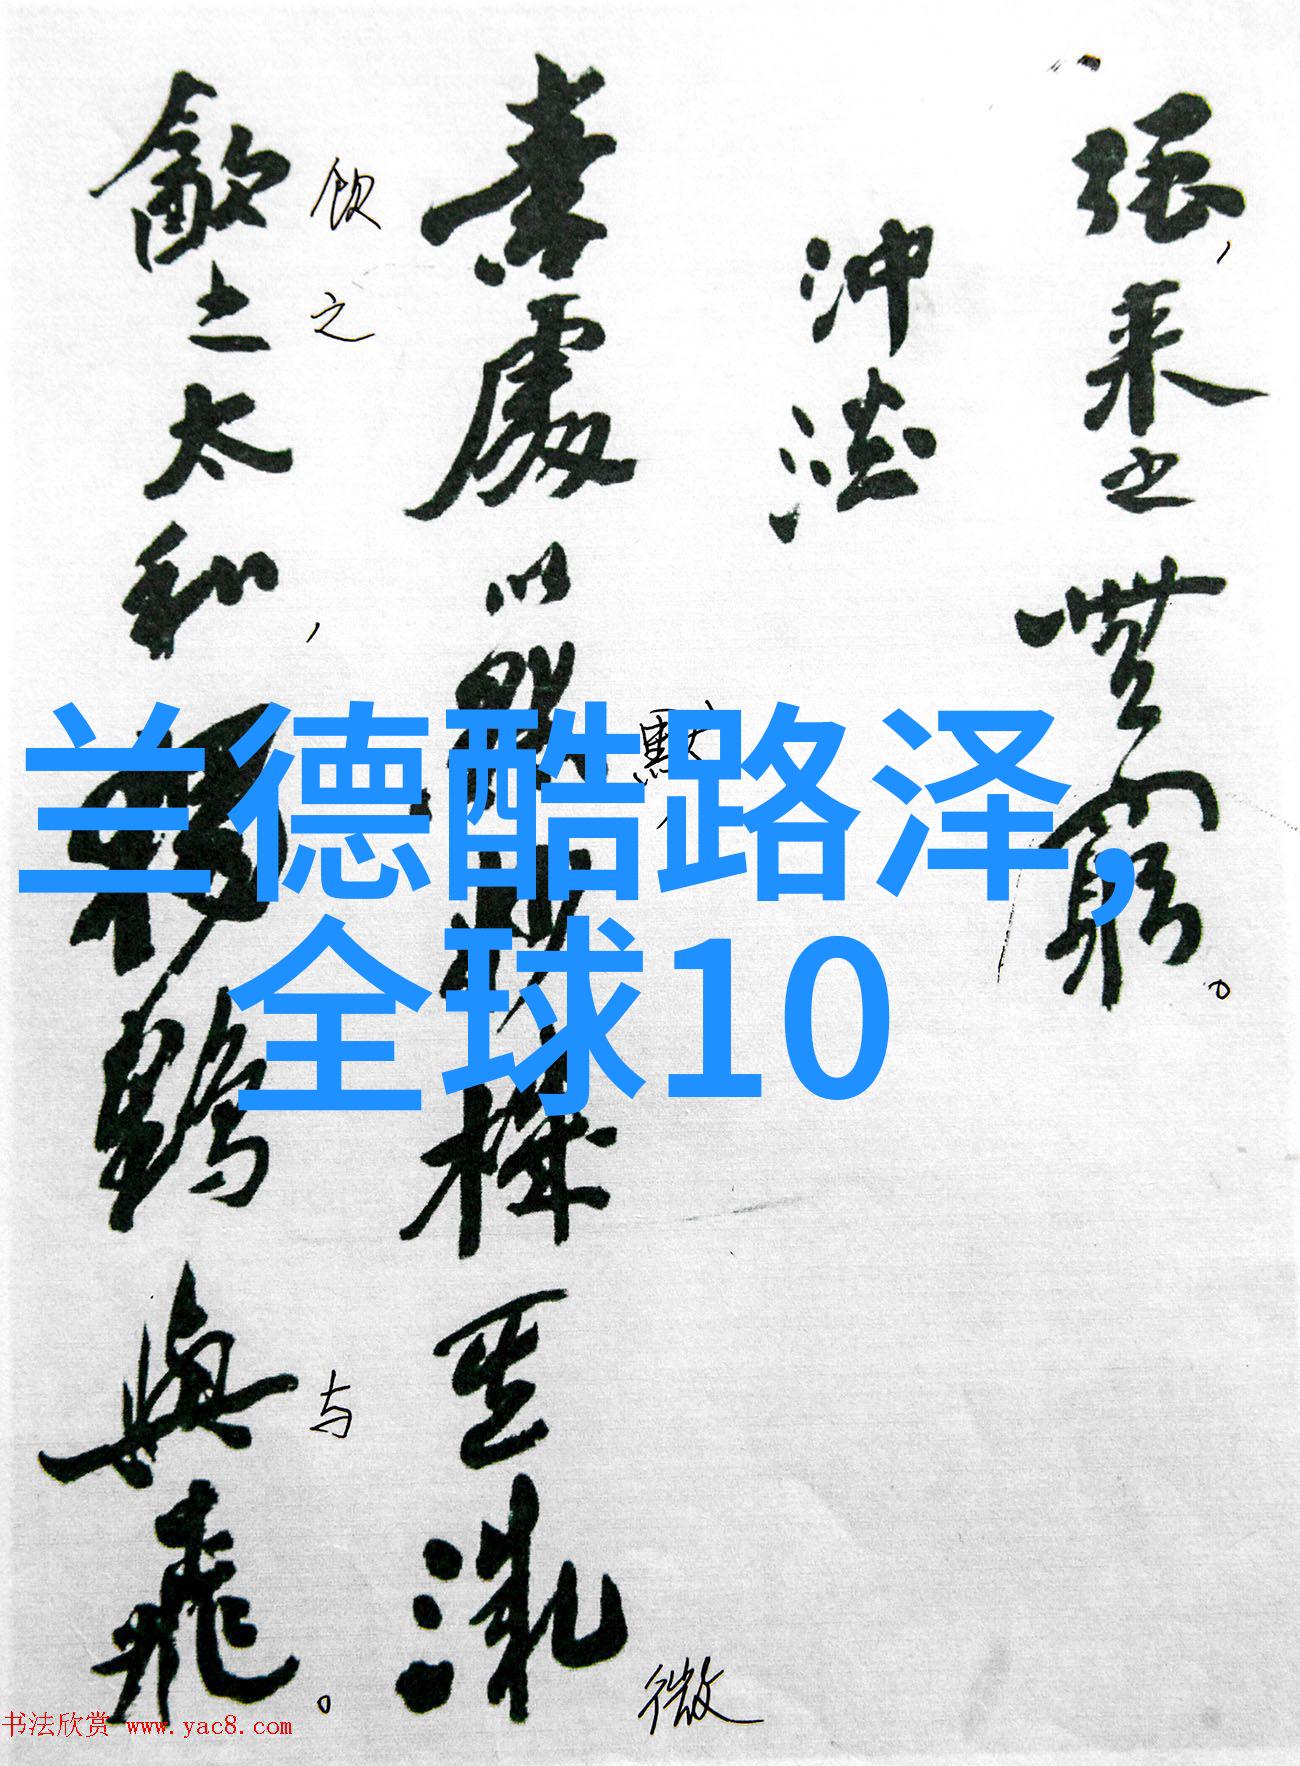 强,来之無窮。
沖淡
素處以默妙機其微
默
微
飲之太和,獨鶴與飛。
饮之
与
兰德酷路泽,
全球10
书法欣赏 www.yac8.com